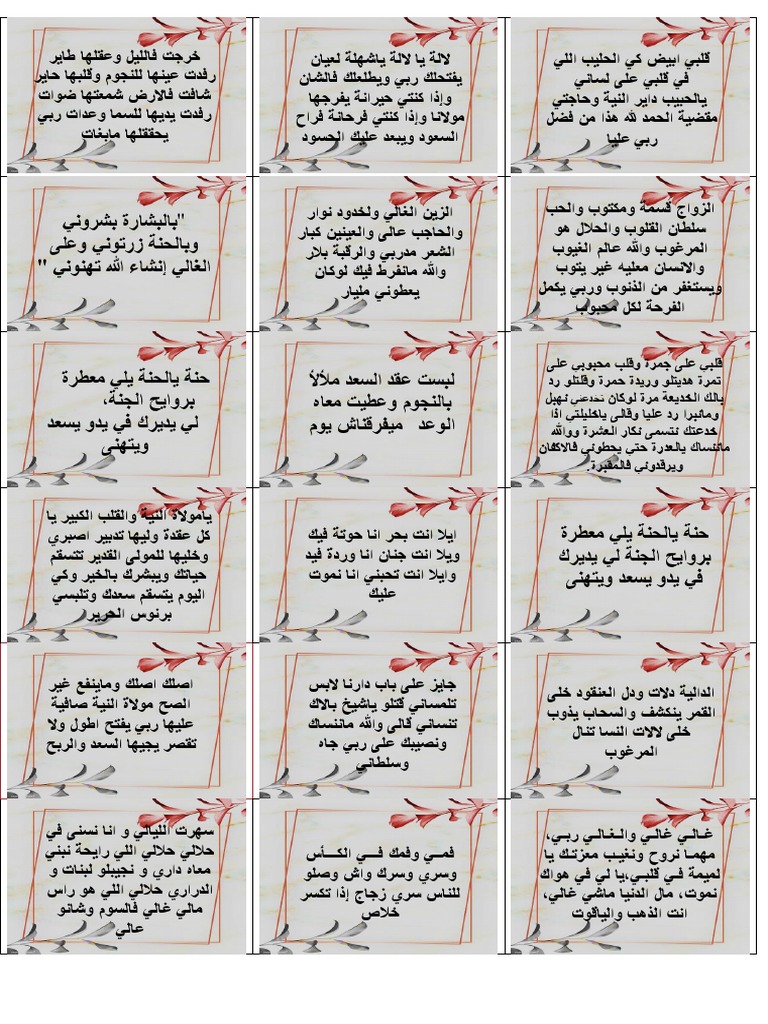 قلبي ابيض كي الحليب اللي
في قلبي على لساني
يالحبيب داير النية وحاجتي
مقضية الحمد لله هذا من فضل
ربي عليا
لالة يا لالة ياشهلة لعيان
يفتحلك ربي ويطلعلك فالشان
وإذا كنتي حيرانة يفرجها
مولانا وإذا كنتي فرحانة فراح
السعود ويبعد عليك الحسود
خرجت فالليل وعقلها طاير
رفدت عينها للنجوم وقلبها حاير
شافت فالارض شمعتها ضوات
رفدت يديها للسما وعدات ربي
يحققلها مابغات
الزواج قسمة ومكتوب والحب
سلطان القلوب والحلال هو
المرغوب والله عالم الغيوب
والانسان معليه غير يتوب
ويستغفر من الذنوب وربي يكمل
الفرحة لكل محبوب
الزين الغالي ولخدود نوار
والحاجب عالي والعينين كبار
الشعر مدربي والرقبة بلار
والله مانفرط فيك لوكان
يعطوني مليار
"بالبشارة بشروني
وبالحنة زرتوني وعلى
الغالي إنشاء الله تهنوني "
قلبي على جمرة وقلب محبوبي على
تمرة هديتلو وريدة حمرة وقلتلو رد
بالك الخديعة مرة لوكان تخدعني نهبل
ومانبرا رد عليا وقالي ياخليلتي اذا
خدعتك نتسمى نكار العشرة ووالله
ماننساك يالعدرة حتي يحطوني فالاكفان
ويرقدوني فالمقبرة.
لبست عقد السعد ملألأ
بالنجوم وعطيت معاه
الوعد ميفرقناش يوم
حنة يالحنة يلي معطرة
بروايح الجنة،
لي يديرك في يدو يسعد
ويتهنى
حنة يالحنة يلي معطرة
بروايح الجنة لي يديرك
في يدو يسعد ويتهنى
ايلا انت بحر انا حوتة فيك
ويلا انت جنان انا وردة فيد
وايلا انت تحبني انا نموت
عليك
يامولاة النية والقلب الكبير يا
كل عقدة وليها تدبير اصبري
وخليها للمولى القدير تتسقم
حياتك ويبشرك بالخير وكي
اليوم يتسقم سعدك وتلبسي
برنوس الحرير
الدالية دلات ودل العنقود خلى
القمر ينكشف والسحاب يذوب
خلى لالات النسا تنال
المرغوب
جايز على باب دارنا لابس
تلمساني قتلو ياشيخ بالاك
تنساني قالى والله ماننساك
ونصيبك على ربي جاه
وسلطاني
اصلك اصلك وماينفع غير
الصح مولاة النية صافية
عليها ربي يفتح اطول ولا
تقصر يجيها السعد والربح
غـالـي غالـي والـغالـي ربـي،
مهمـا نروح ونغيـب معزتـك يا
لميمة فـي قلبـي،يا لي في هواك
نموت، مال الدنيا ماشي غالي،
انت الذهب والياقوت
فمـــي وفمك فـــي الكـــأس
وسري وسرك واش وصلو
للناس سري زجاج إذا تكسر
خلاص
سهرت الليالي و انا نسنى في
حلالي حلالي اللي رايحة نبني
معاه داري و نجيبلو لبنات و
الدراري حلالي اللي هو راس
مالي غالي فالسوم وشانو
عالي